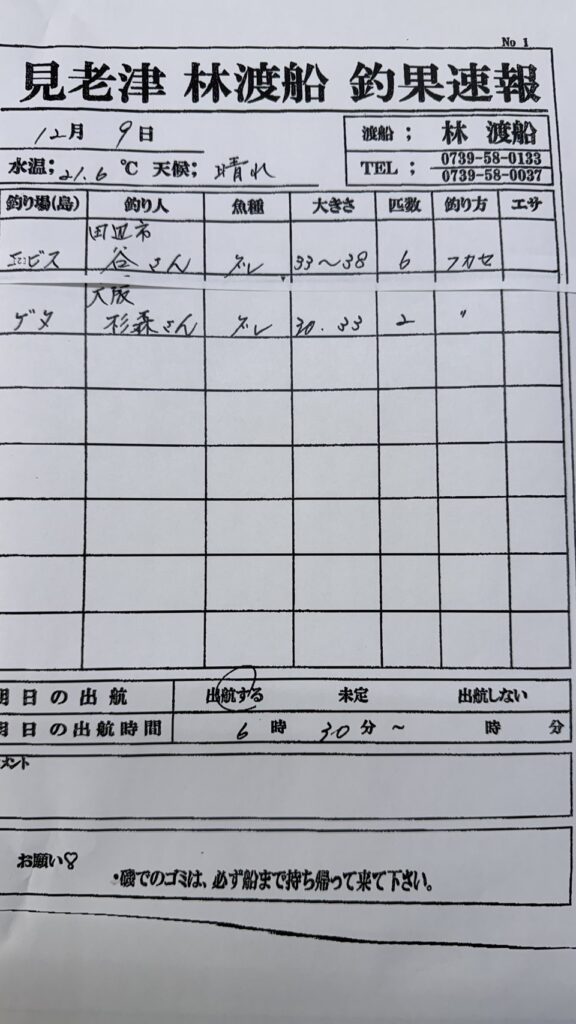 No 1
見老津 林渡船 釣果速報
12月 9日
渡船； 林 渡船
水温；21.6 ℃ 天候； 晴れ
TEL； 0739-58-0133
0739-58-0037
釣り場(島) 釣り人 魚種 大きさ 匹数 釣り方 エサ
田辺市
エビス 谷さん グレ 33〜38 6 フカセ
大阪
ゲタ 杉森さん グレ 30.33 2 〃
明日の出航 出航する 未定 出航しない
明日の出航時間 6 時 30 分 〜 時 分
メント
お願い♡
・磯でのゴミは、必ず船まで持ち帰って来て下さい。